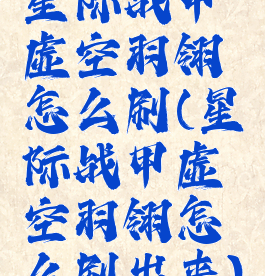 星际战甲
虚空羽翎
怎么刷(星
际战甲虚
空羽翎怎
么刷出来)